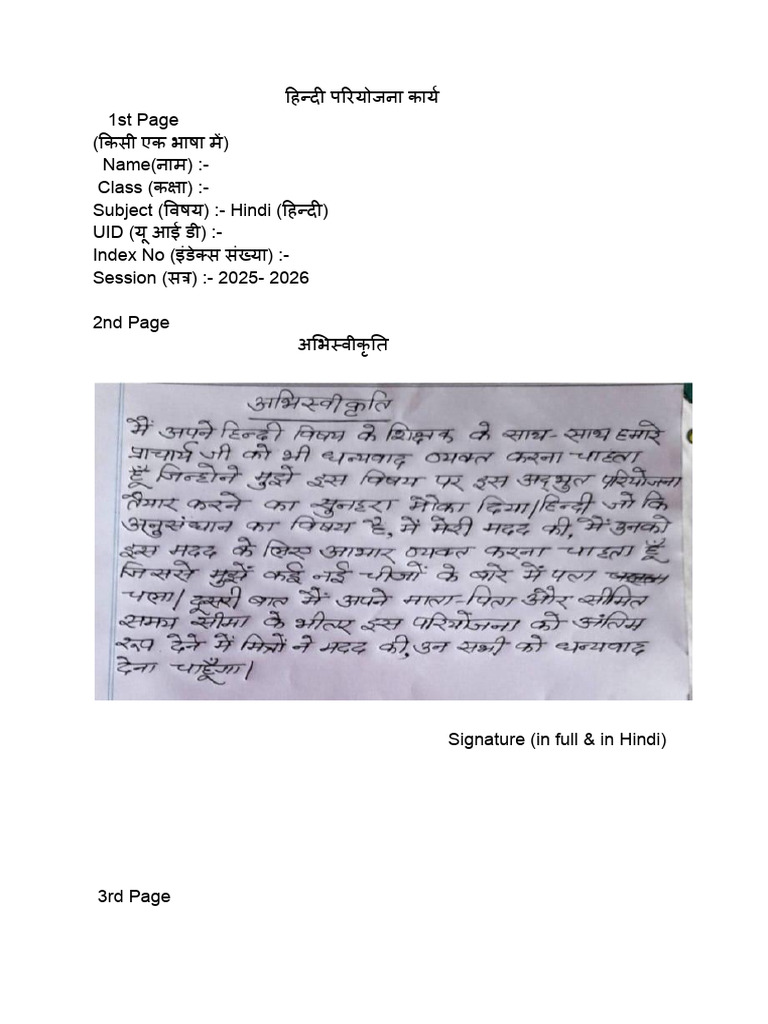 हिन्दी परियोजना कार्य
1st Page
(किसी एक भाषा में)
Name(नाम) :-
Class (कक्षा) :-
Subject (विषय) :- Hindi (हिन्दी)
UID (यू आई डी) :-
Index No (इंडेक्स संख्या) :-
Session (सत्र) :- 2025- 2026
2nd Page
अभिस्वीकृति
अभिस्वीकृति
मैं अपने हिन्दी विषय के शिक्षक के साथ-साथ हमारे
प्राचार्य जी को भी धन्यवाद व्यक्त करना चाहता
हूँ जिन्होने मुझे इस विषय पर इस अद्भुत परियोजना
तैयार करने का सुनहरा मौका दिया। हिन्दी जो कि
अनुसंधान का विषय है, में मेरी मदद की, मैं उनको
इस मदद के लिए आभार व्यक्त करना चाहता हूँ
जिससे मुझे कई नई चीजों के बारे में पता
चला। दूसरी बात मैं अपने माता-पिता और सीमित
समय सीमा के भीतर इस परियोजना को अंतिम
रूप देने में मित्रों ने मदद की, उन सभी को धन्यवाद
देना चाहूँगा।
Signature (in full & in Hindi)
3rd Page